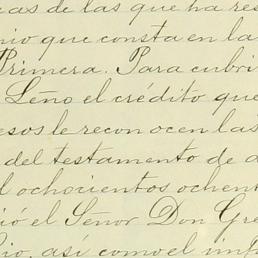 cas de las que ha res
nio que consta en la
Primera. Para cubri
Leño el crédito que
esos le reconocen las
del testamento de d
l ochocientos ochent
ió el Señor Don Gre
io, así como el imp